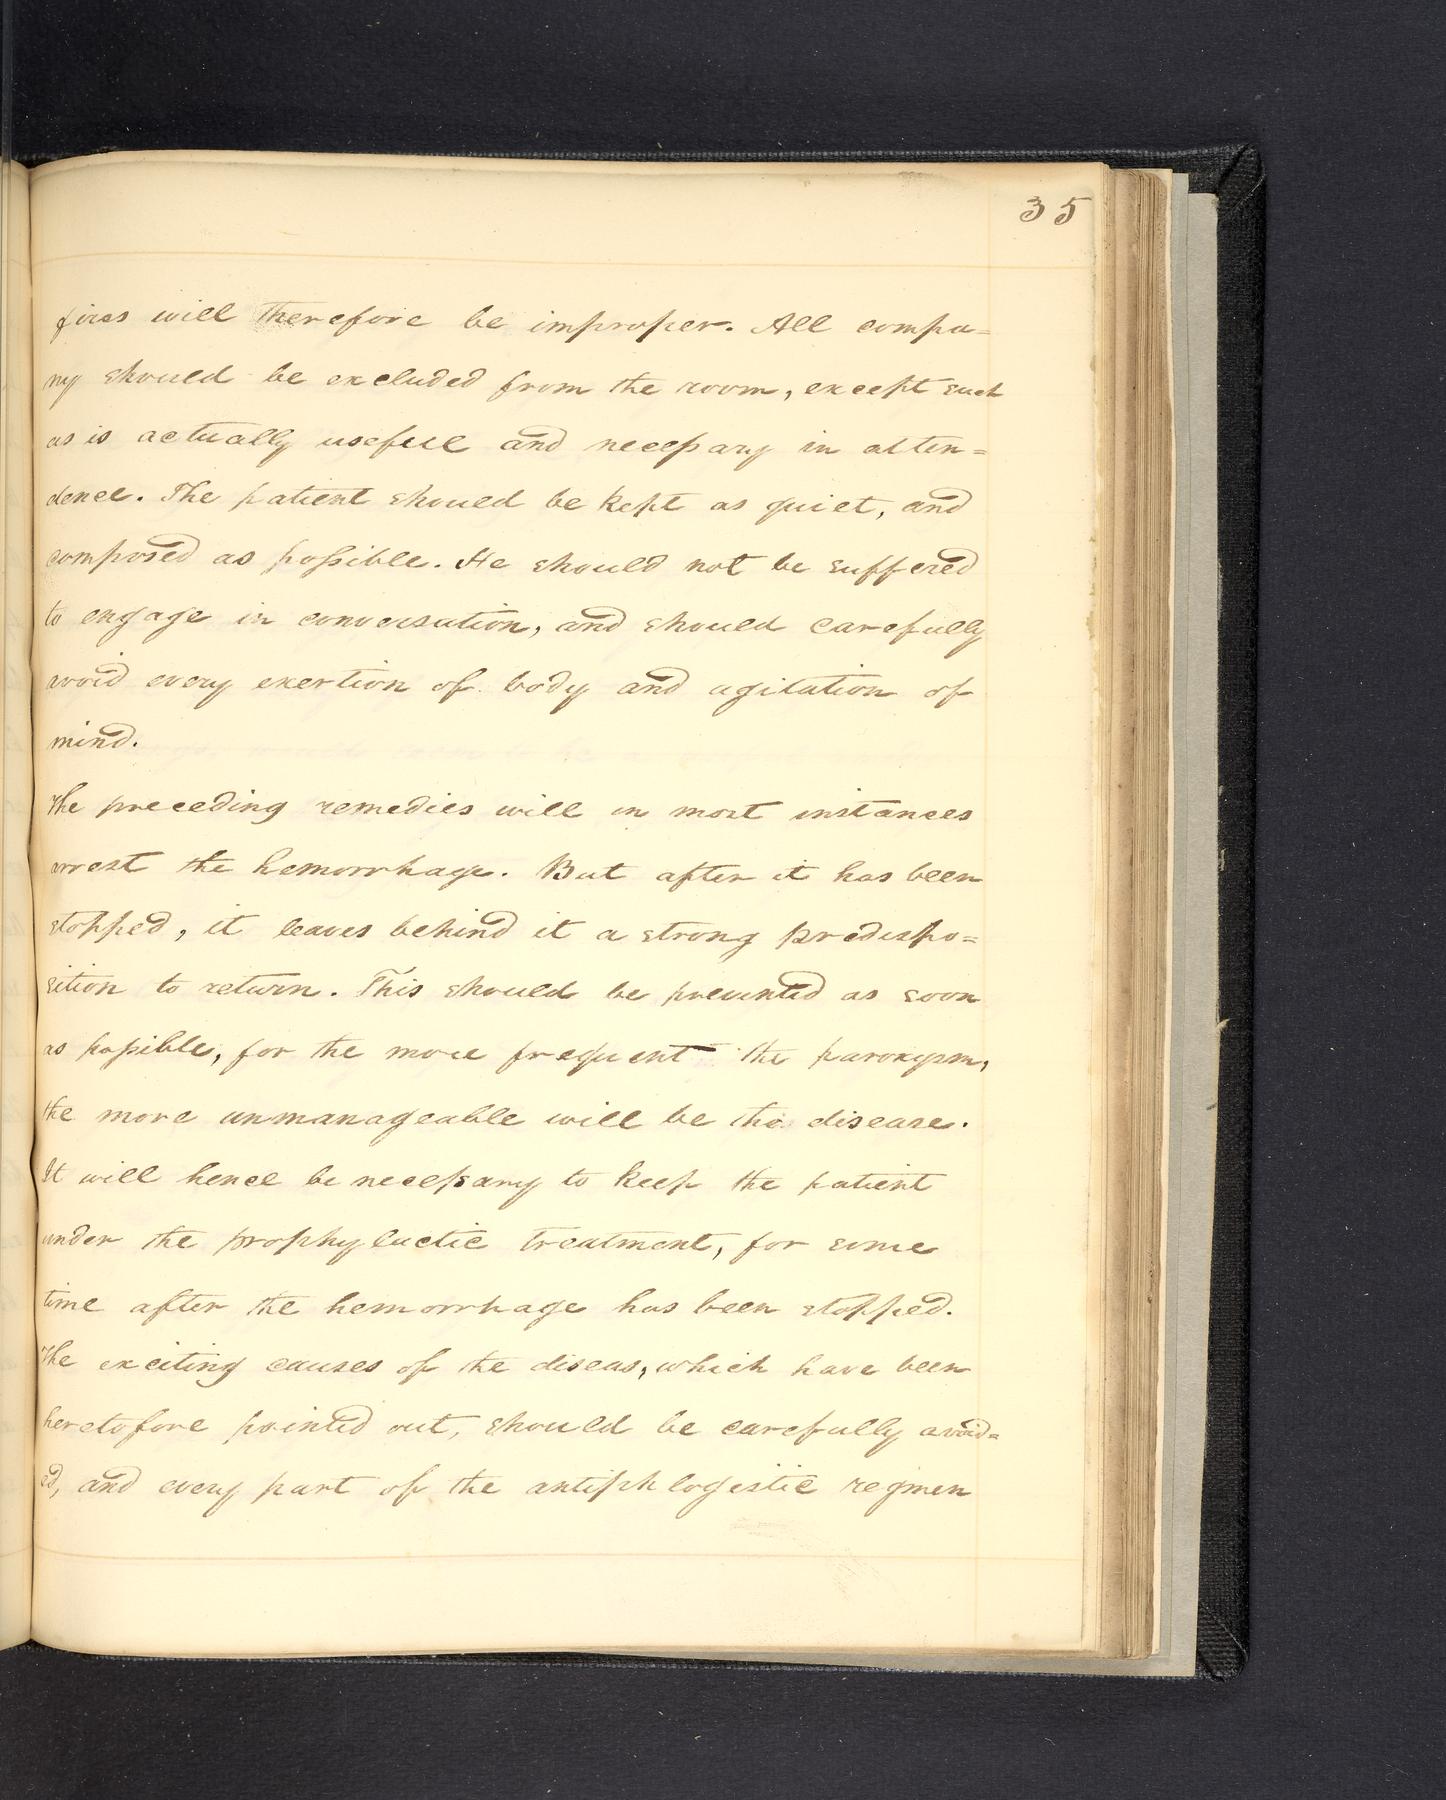 35
fires will therefore be improper. All compa=
ny should be excluded from the room, except such
as is actually usefull and necessary in atten=
dence. The patient should be kept as quiet, and
composed as possible. He should not be suffered
to engage in conversation, and should carefully
avoid every exertion of body and agitation of
mind.
The preceeding remedies will in most instances
arrest the hemorrhage. But after it has been
stopped, it leaves behind it a strong predispo=
sition to return. This should be prevented as soon
as possible, for the more frequent the paroxysm,
the more unmanageable will be the disease.
It will hence be necessary to keep the patient
under the prophylactic treatment, for some
time after the hemorrhage has been stopped.
The exciting causes of the diseas, which have been
heretofore pointed out, should be carefully avoid=
ed, and every part of the antiphlogistic regmen